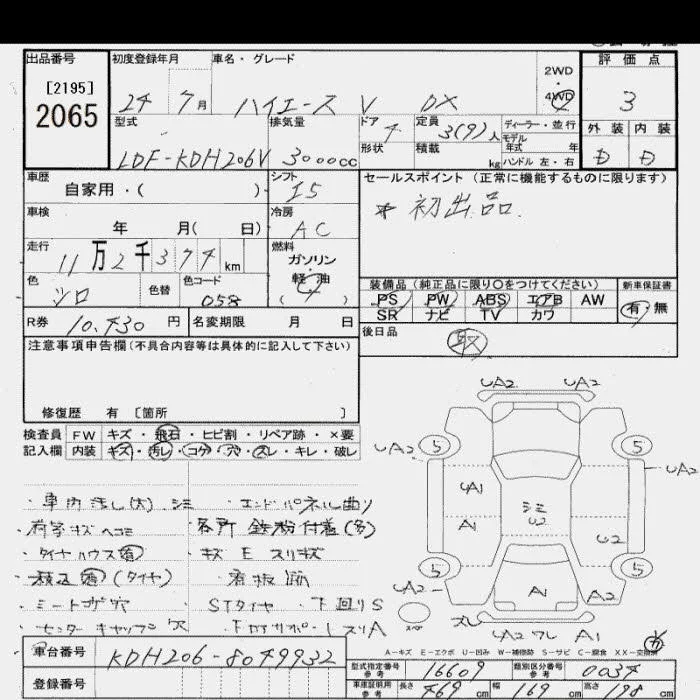 出品番号 初度登録年月 車名・グレード 評価点
[2195]
2065
24 7月 ハイエース V DX 2WD 4WD 3
型式 排気量 ドア 定員 ディーラー・並行 外装 内装
LDF-KDH206V 3000cc 4 3(9)人 モデル年式 年
形状 積載 kg ハンドル 左・右 D D
車歴 シフト セールスポイント (正常に機能するものに限ります)
自家用・( ) I5 * 初出品.
車検 冷房
年 月( 日) AC
走行 燃料
11万2千374km ガソリン・軽油
色 色替 色コード ( )
シロ 058
装備品 (純正品に限り○をつけてください) 新車保証書
PS PW ABS エアB AW 有 無
SR ナビ TV カワ
R券 10,430円 名変期限 月 日
後日品 取
注意事項申告欄 (不具合内容等は具体的に記入して下さい)
修復歴 有 [箇所 ]
検査員 FW キズ・飛石・ヒビ割・リペア跡・×要
記入欄 内装 キズ・汚レ・コゲ・穴・スレ・キレ・破レ
・車内汚レ(大) シミ ・エンドパネル曲り
・荷室キズヘコミ ・各所 鉄粉付着(多)
・タイヤハウス ・キズ E スリキズ
(タイヤ) 看板跡
・ミートゴザ穴 STタイヤ・下回りS
・センターキャップ欠
UA2 UA2
5 5
UA2 UA2
UA1
A1 シミ U2
U2
5 5
UA2 A1 A2
スペア スレ UA2 ワレ A1
A-キズ E-エクボ U-凹み W-補修跡 S-サビ C-腐食 XX-交換済
車台番号 KDH206-8049932
登録番号
型式指定番号 参考 16609 類別区分番号 参考 0034
車庫証明用 参考 長さ 469cm 幅 169cm 高さ 198cm